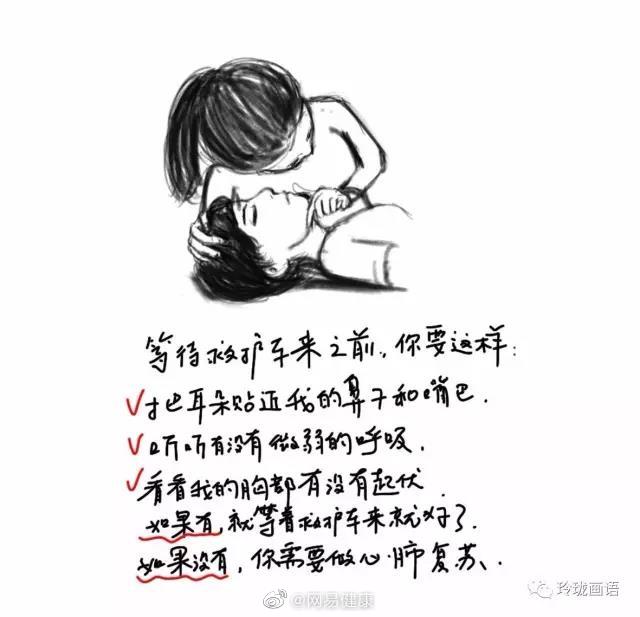 等待救护车来之前,你要这样:
✓把耳朵贴近我的鼻子和嘴巴.
✓听听有没有微弱的呼吸.
✓看看我的胸部有没有起伏
如果有,就等着救护车来就好了.
如果没有,你需要做心肺复苏、
@网易健康
玲珑画语